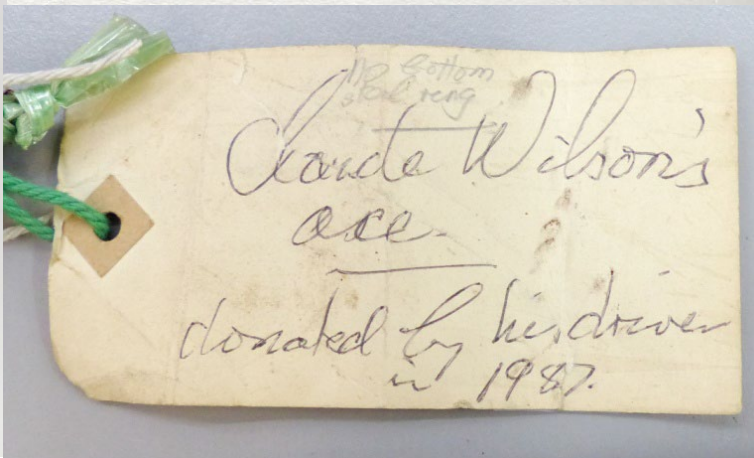 No bottom
steel ring
Claude Wilson's
axe.
donated by his driver
in 1987.